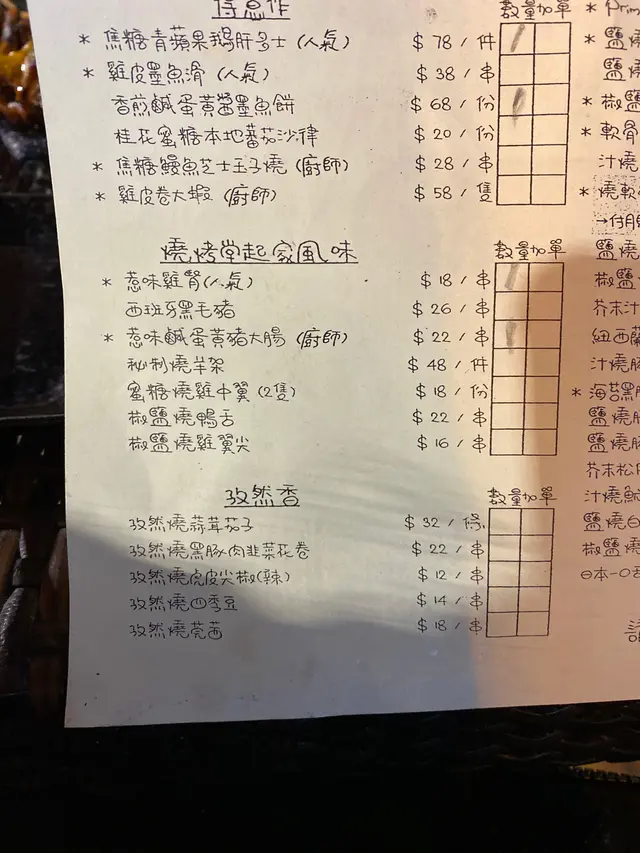 得意作 數量 加單
* 焦糖青蘋果鵝肝多士(人氣) $78/件
* 雞皮墨魚滑(人氣) $38/串
香煎鹹蛋黃醬墨魚餅 $68/份
桂花蜜糖本地蕃茄沙律 $20/份
* 焦糖鰻魚芝士玉子燒(廚師) $28/串
* 雞皮卷大蝦(廚師) $58/隻
燒烤堂起家風味 數量 加單
* 惹味雞腎(人氣) $18/串
西班牙黑毛豬 $26/串
* 惹味鹹蛋黃豬大腸(廚師) $22/串
秘制燒羊架 $48/件
蜜糖燒雞中翼(2隻) $18/份
椒鹽燒鴨舌 $22/串
椒鹽燒雞翼尖 $16/串
孜然香 數量 加單
孜然燒蒜茸茄子 $32/條
孜然燒黑豚肉韭菜花卷 $22/串
孜然燒虎皮尖椒(辣) $12/串
孜然燒四季豆 $14/串
孜然燒莞茜 $18/串
* Prim
* 鹽燒
鹽燒
* 椒鹽
* 軟骨
汁燒
* 燒軟
鹽燒
椒鹽
芥末汁
紐西蘭
汁燒
* 海苔黑
鹽燒
鹽燒
芥末松
汁燒
鹽燒白
椒鹽燒
日本一口